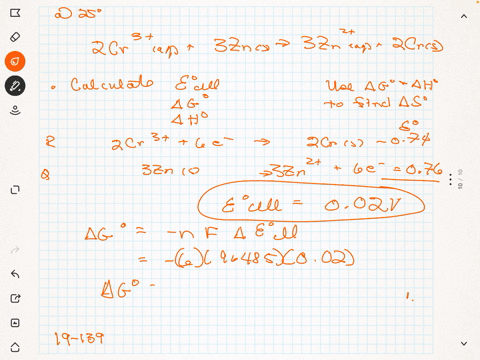 @ 25°
2Cr³⁺(aq) + 3Zn(s) → 3Zn²⁺(aq) + 2Cr(s)
• Calculate E°cell Use ΔG° + ΔH°
ΔG° to find ΔS°
ΔH° S°
R 2Cr³⁺ + 6e⁻ → 2Cr(s) -0.74
O 3Zn(s) → 3Zn²⁺ + 6e⁻ = 0.76
E°cell = 0.02V
ΔG° = -nFΔE°cell
= -(6)(96485)(0.02)
ΔG° =
19-139
10 / 10